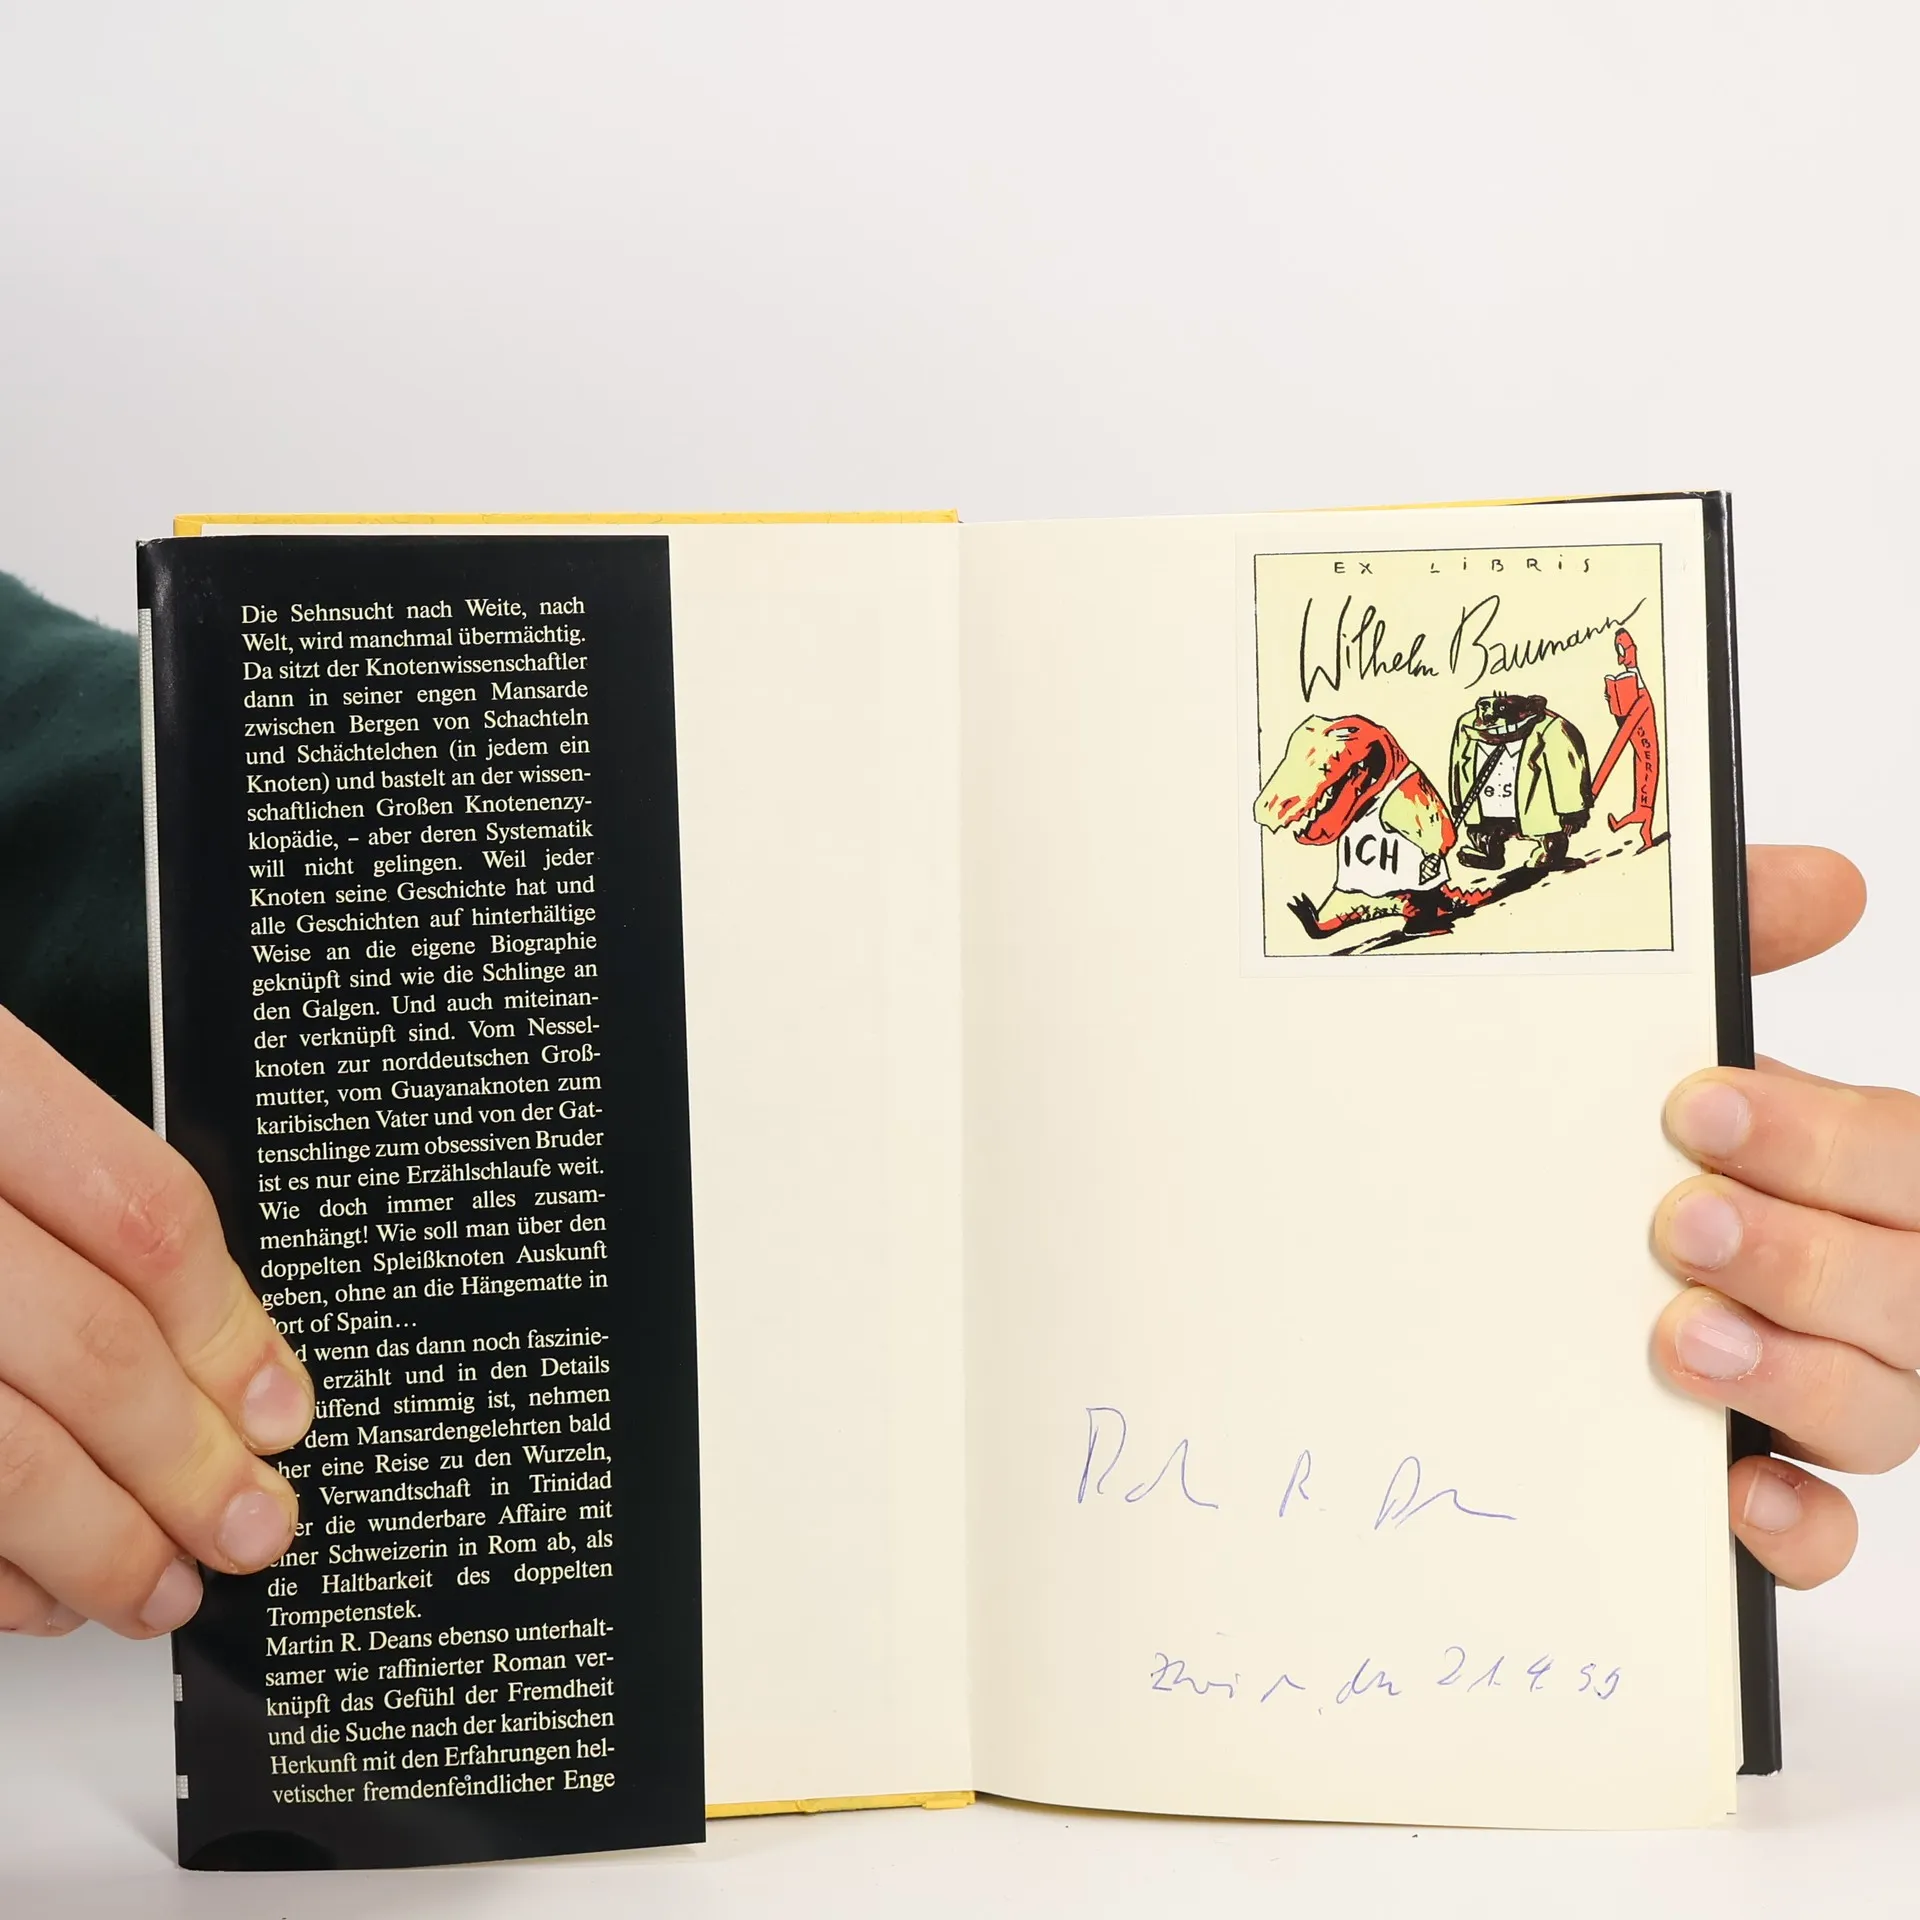 Die Sehnsucht nach Weite, nach
Welt, wird manchmal übermächtig.
Da sitzt der Knotenwissenschaftler
dann in seiner engen Mansarde
zwischen Bergen von Schachteln
und Schächtelchen (in jedem ein
Knoten) und bastelt an der wissen-
schaftlichen Großen Knotenenzy-
klopädie, – aber deren Systematik
will nicht gelingen. Weil jeder
Knoten seine Geschichte hat und
alle Geschichten auf hinterhältige
Weise an die eigene Biographie
geknüpft sind wie die Schlinge an
den Galgen. Und auch miteinan-
der verknüpft sind. Vom Nessel-
knoten zur norddeutschen Groß-
mutter, vom Guayanaknoten zum
karibischen Vater und von der Gat-
tenschlinge zum obsessiven Bruder
ist es nur eine Erzählschlaufe weit.
Wie doch immer alles zusam-
menhängt! Wie soll man über den
doppelten Spleißknoten Auskunft
geben, ohne an die Hängematte in
Port of Spain…
wenn das dann noch faszinie-
erzählt und in den Details
üffend stimmig ist, nehmen
dem Mansardengelehrten bald
her eine Reise zu den Wurzeln,
Verwandtschaft in Trinidad
er die wunderbare Affaire mit
einer Schweizerin in Rom ab, als
die Haltbarkeit des doppelten
Trompetenstek.
Martin R. Deans ebenso unterhalt-
samer wie raffinierter Roman ver-
knüpft das Gefühl der Fremdheit
und die Suche nach der karibischen
Herkunft mit den Erfahrungen hel-
vetischer fremdenfeindlicher Enge
EX LIBRIS
Wilhelm Baumann
ÜBERICH
es
ICH
R.
21.4.99